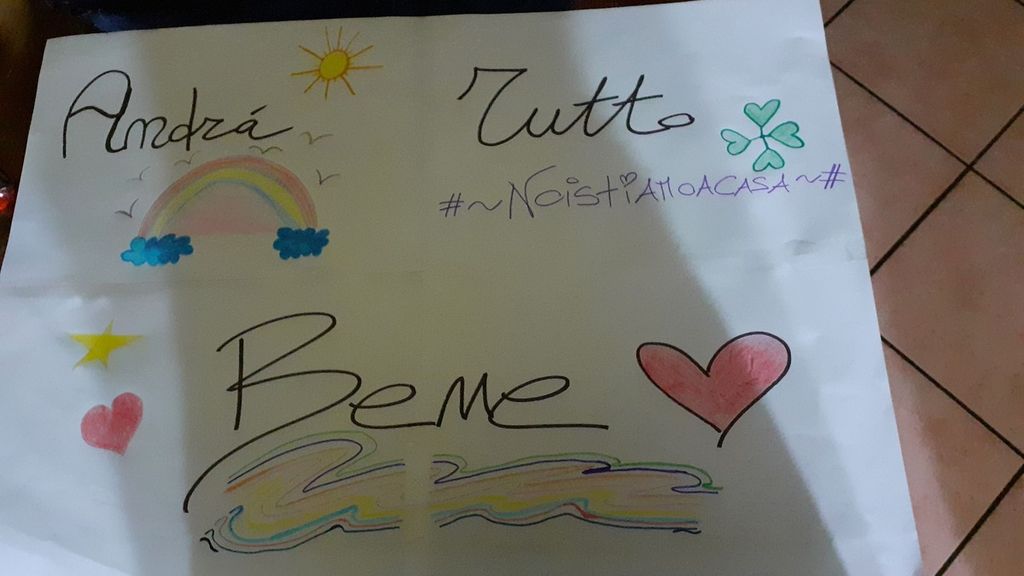 Andrá Tutto
#~NoistiAMOACASA~#
Bene